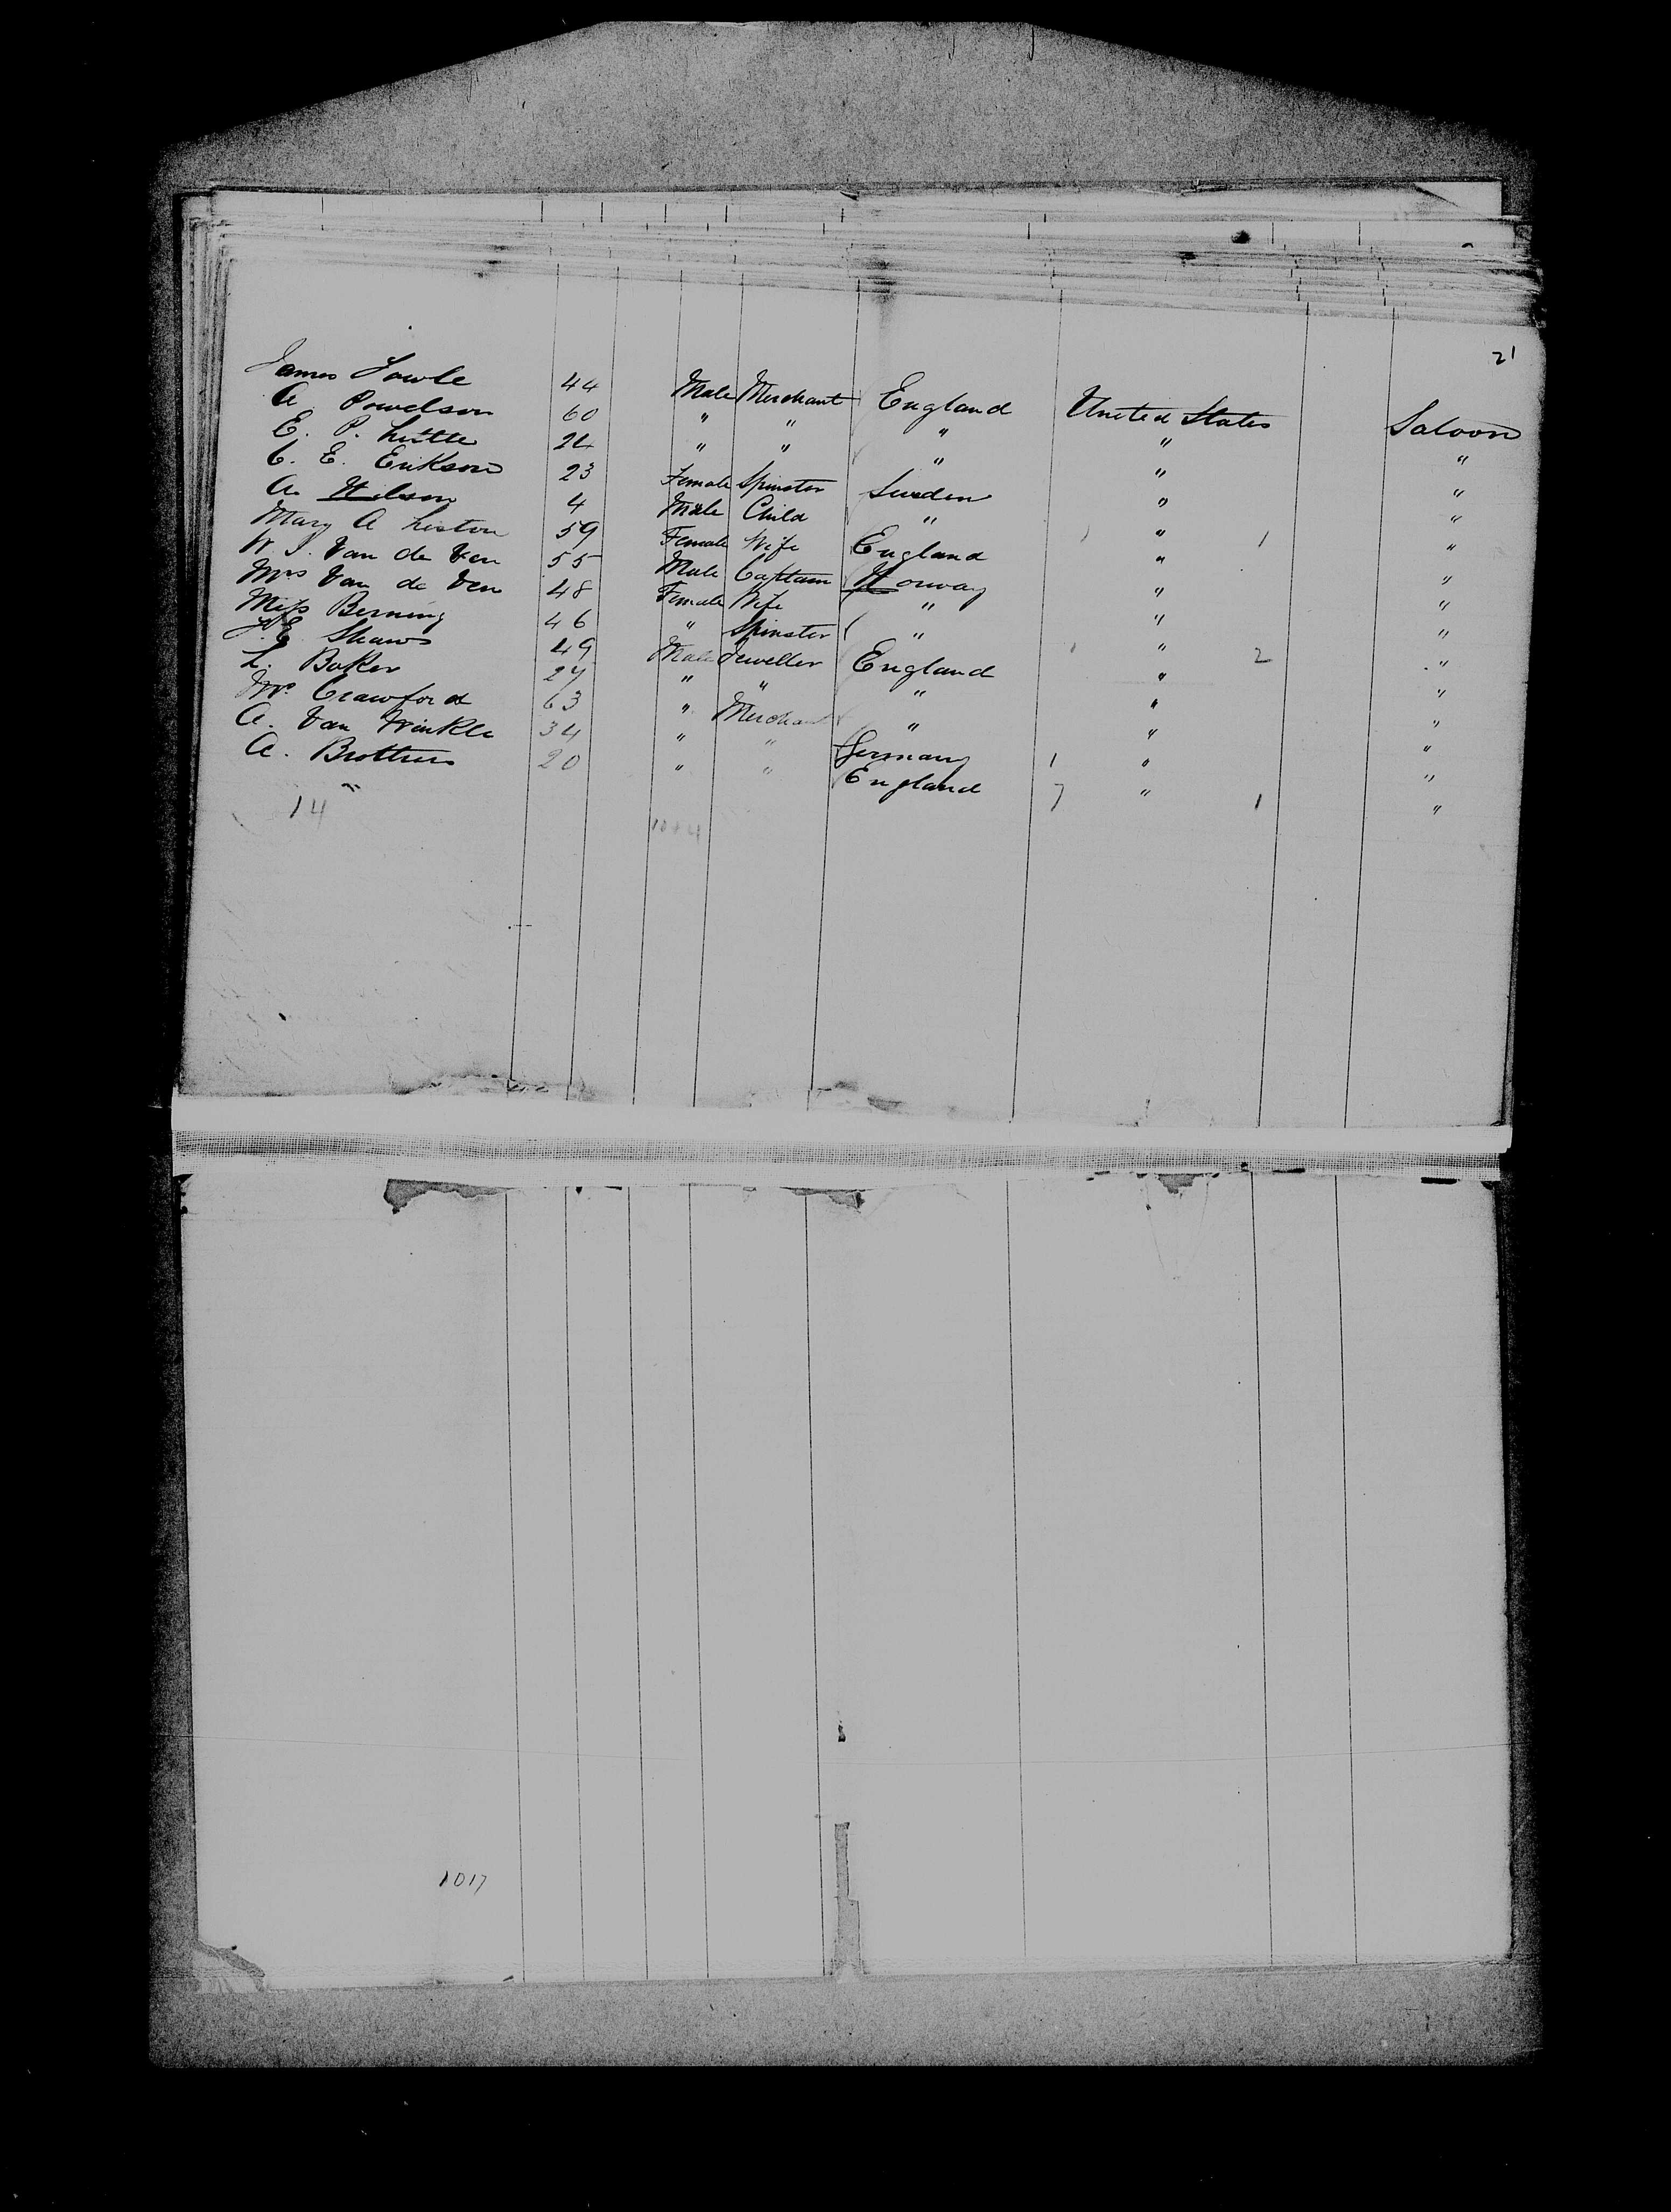 21
James Fowle 44 Male Merchant England United States Saloon
A Powelson 60 " " " " "
E. P. Little 24 " " " " "
C. E. Erikson 23 Female Spinster Sweden " "
A. Nilson 4 Male Child " " "
Mary A Liston 59 Female Wife England " 1 "
W. J. Van de Ven 55 Male Captain Norway " "
Mrs Van de Ven 48 Female Wife " " "
Miss Berning 46 " Spinster " " "
Shaw 49 Male Jeweller England " 2 "
L. Baker 27 " " " " "
Mr. Crawford 63 " Merchant " " "
A. Van Winkle 34 " " Germany 1 " "
A. Brothers 20 " " England 7 " 1 "
14
1017